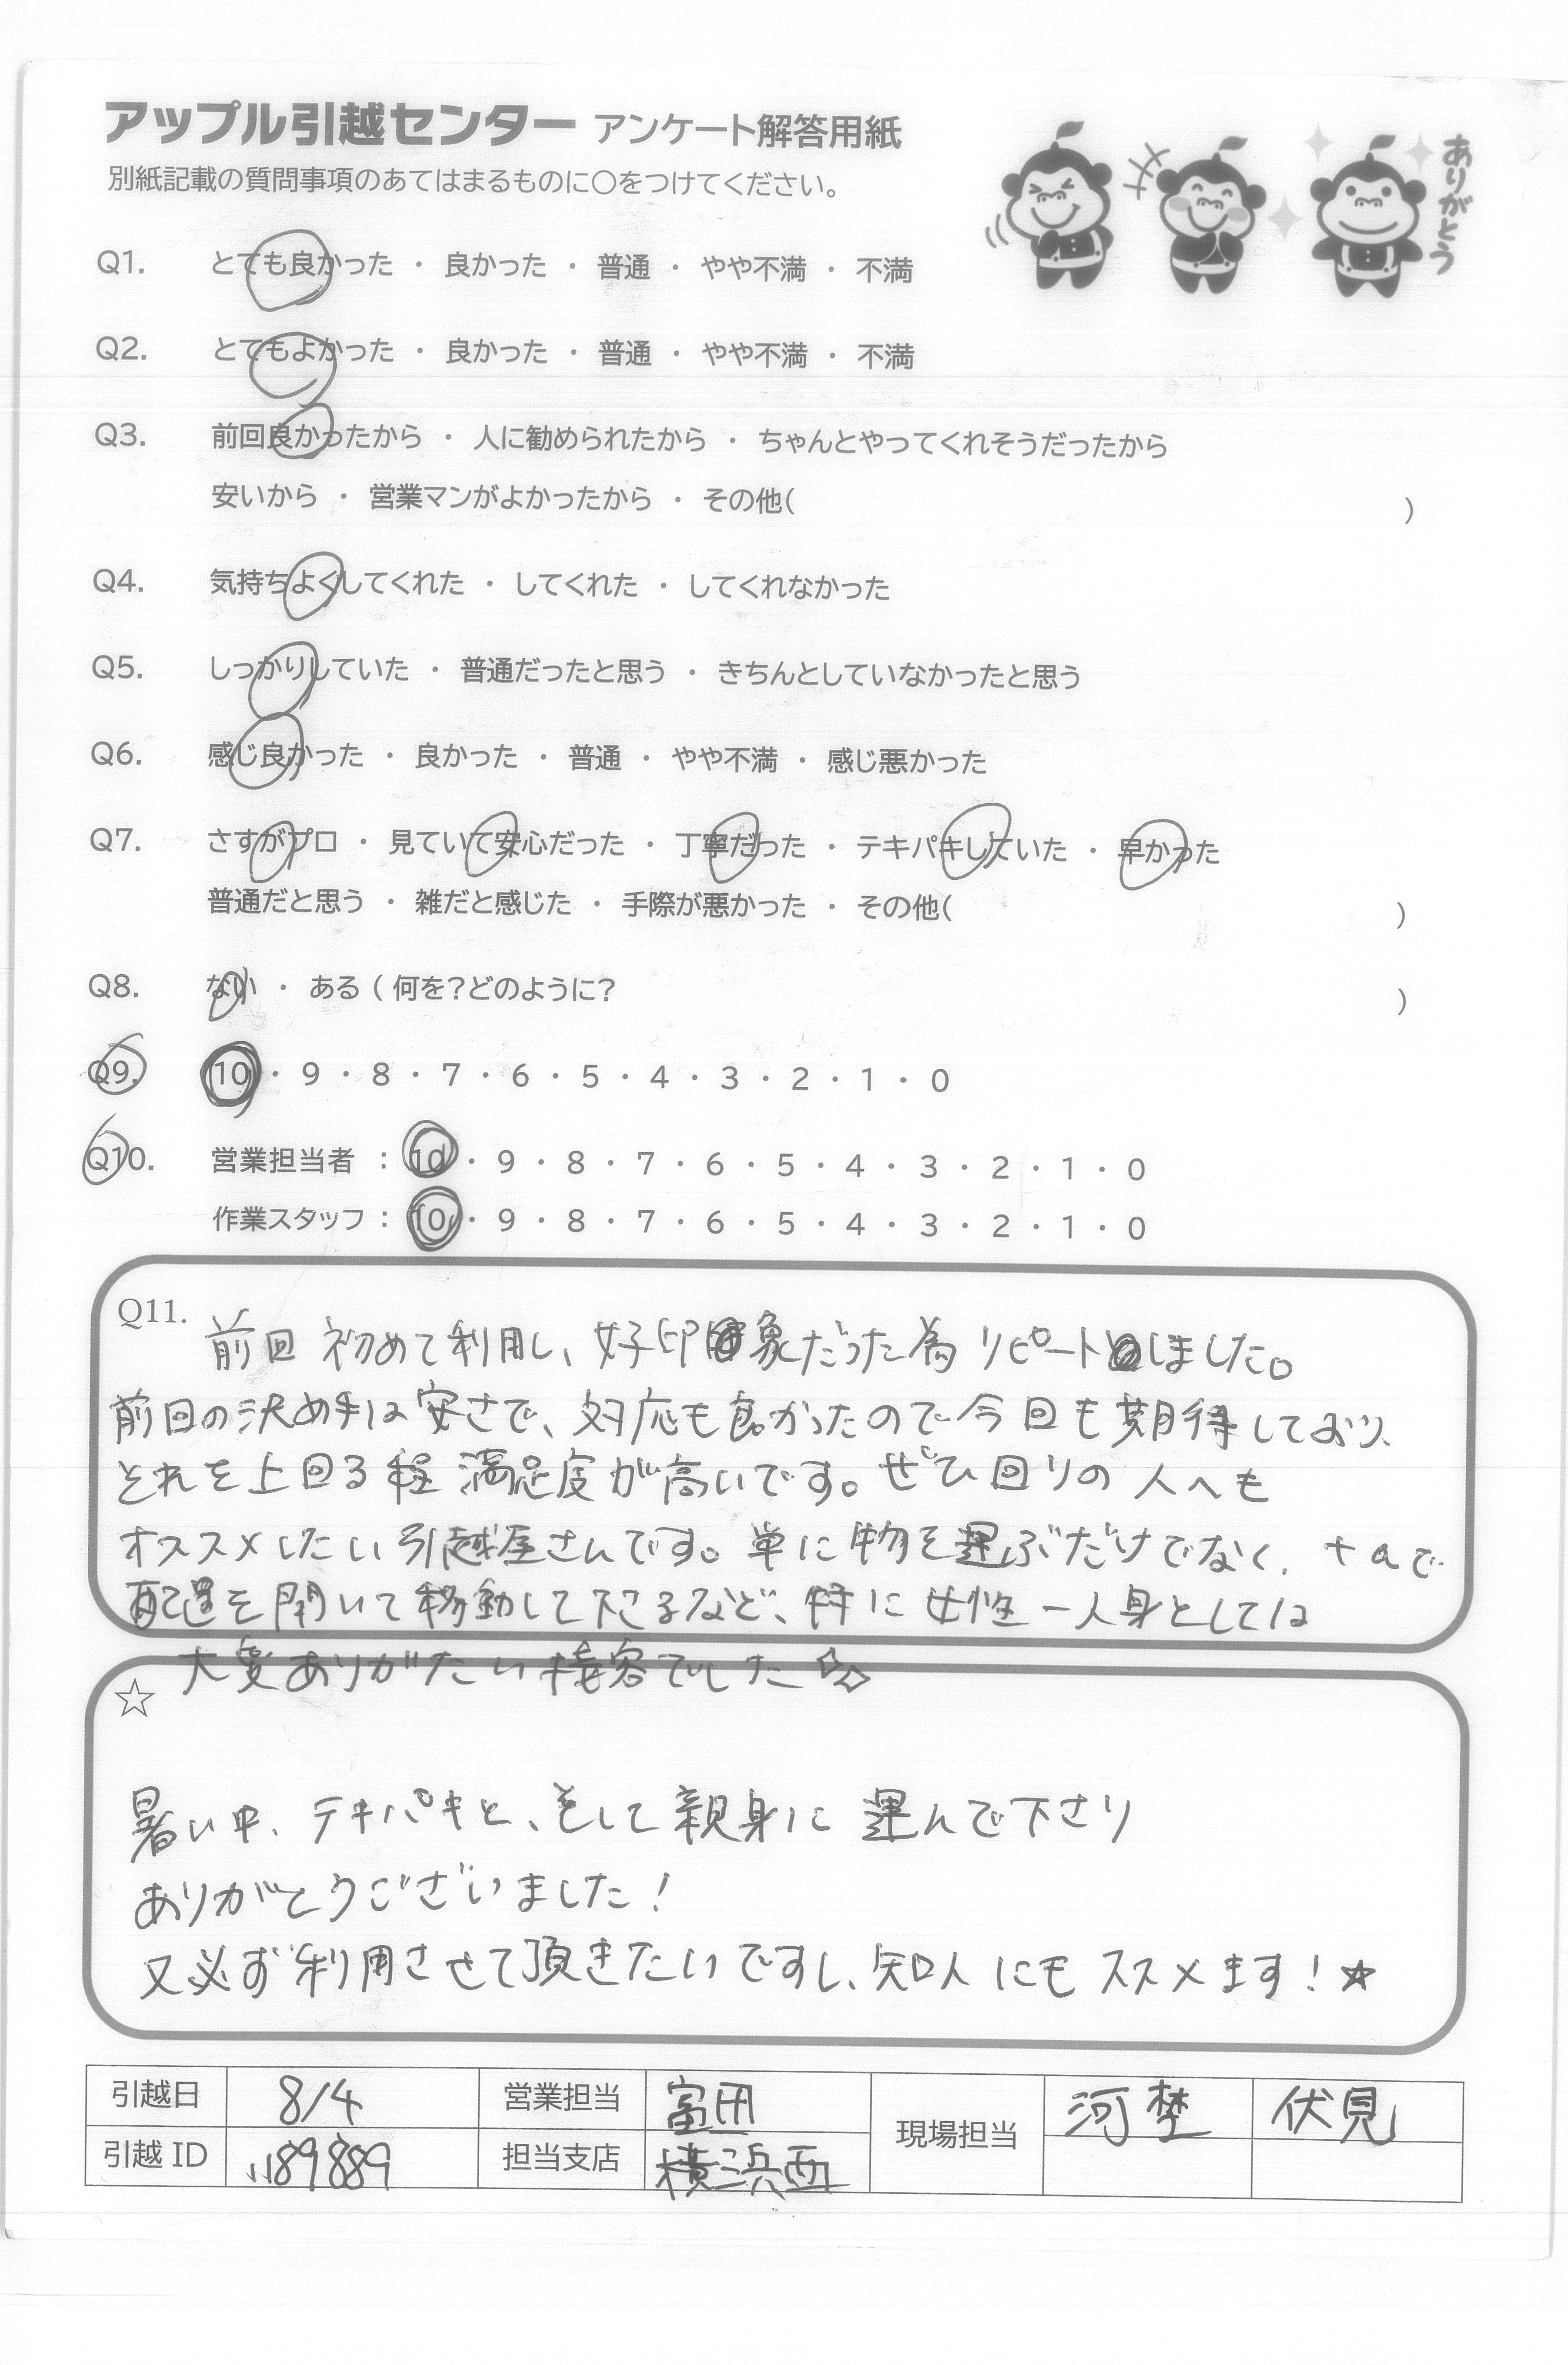 アップル引越センター アンケート解答用紙
別紙記載の質問事項のあてはまるものに○をつけてください。
ありがとう
Q1. とても良かった ・ 良かった ・ 普通 ・ やや不満 ・ 不満
Q2. とてもよかった ・ 良かった ・ 普通 ・ やや不満 ・ 不満
Q3. 前回良かったから ・ 人に勧められたから ・ ちゃんとやってくれそうだったから
安いから ・ 営業マンがよかったから ・ その他( )
Q4. 気持ちよくしてくれた ・ してくれた ・ してくれなかった
Q5. しっかりしていた ・ 普通だったと思う ・ きちんとしていなかったと思う
Q6. 感じ良かった ・ 良かった ・ 普通 ・ やや不満 ・ 感じ悪かった
Q7. さすがプロ ・ 見ていて安心だった ・ 丁寧だった ・ テキパキしていた ・ 早かった
普通だと思う ・ 雑だと感じた ・ 手際が悪かった ・ その他( )
Q8. ない ・ ある ( 何を?どのように? )
Q9. 10 ・ 9 ・ 8 ・ 7 ・ 6 ・ 5 ・ 4 ・ 3 ・ 2 ・ 1 ・ 0
Q10. 営業担当者 : 10 ・ 9 ・ 8 ・ 7 ・ 6 ・ 5 ・ 4 ・ 3 ・ 2 ・ 1 ・ 0
作業スタッフ : 10 ・ 9 ・ 8 ・ 7 ・ 6 ・ 5 ・ 4 ・ 3 ・ 2 ・ 1 ・ 0
Q11. 前回 初めて利用し、好印象だった為 リピートしました。
前回の決め手は安さで、対応も良かったので今回も期待しており、
それを上回る程 満足度が高いです。ぜひ回りの人へも
オススメしたい引越屋さんです。単に物を運ぶだけでなく、+αで
配置を聞いて移動して下さるなど、特に女性一人身としては
大変ありがたい接客でした☆
☆
暑い中、テキパキと、そして親身に 運んで下さり
ありがとうございました!
又必ず利用させて頂きたいですし、知人にもススメます!☆
引越日 8/4 営業担当 富田 現場担当 河埜 伏見
引越ID 担当支店 横浜西